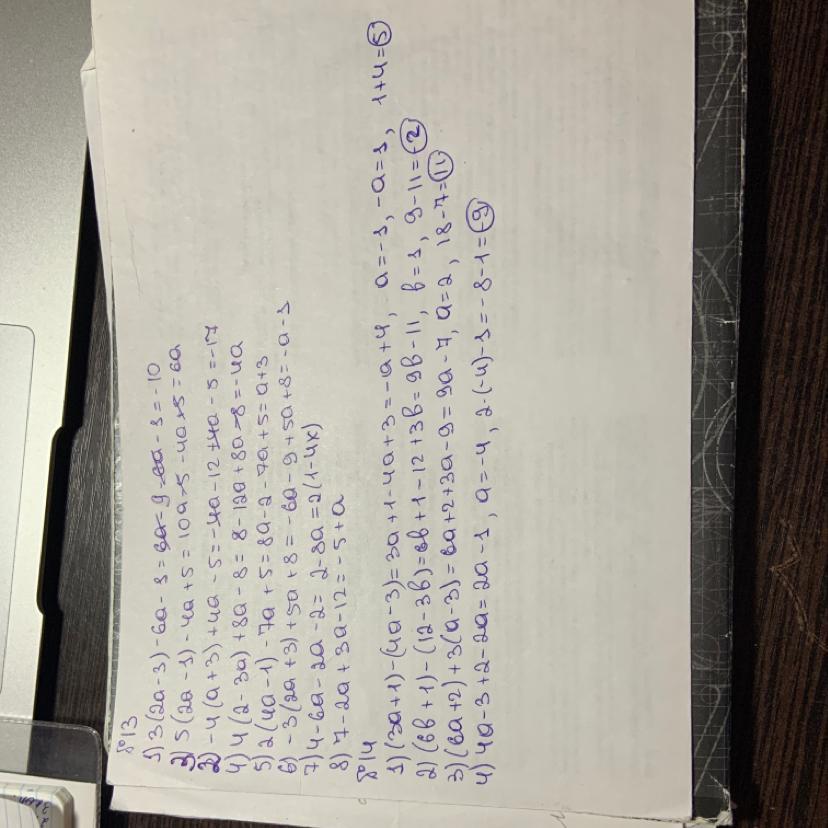 №13
1) 3(2a-3)-6a-1=6a-9-6a-1=-10
2) 5(2a-1)-4a+5=10a-5-4a+5=6a
3) -4(a+3)+4a-5=-4a-12+4a-5=-17
4) 4(2-3a)+8a-8=8-12a+8a-8=-4a
5) 2(4a-1)-7a+5=8a-2-7a+5=a+3
6) -3(2a+3)+5a+8=-6a-9+5a+8=-a-1
7) 4-6a-2a-2=2-8a=2(1-4x)
8) 7-2a+3a-12=-5+a
№14
1) (3a+1)-(4a-3)=3a+1-4a+3=-a+4, a=-1, -a=1, 1+4=5
2) (6b+1)-(12-3b)=6b+1-12+3b=9b-11, b=1, 9-11=-2
3) (6a+2)+3(a-3)=6a+2+3a-9=9a-7, a=2, 18-7=11
4) 4a-3+2-2a=2a-1, a=-4, 2·(-4)-1=-8-1=-9